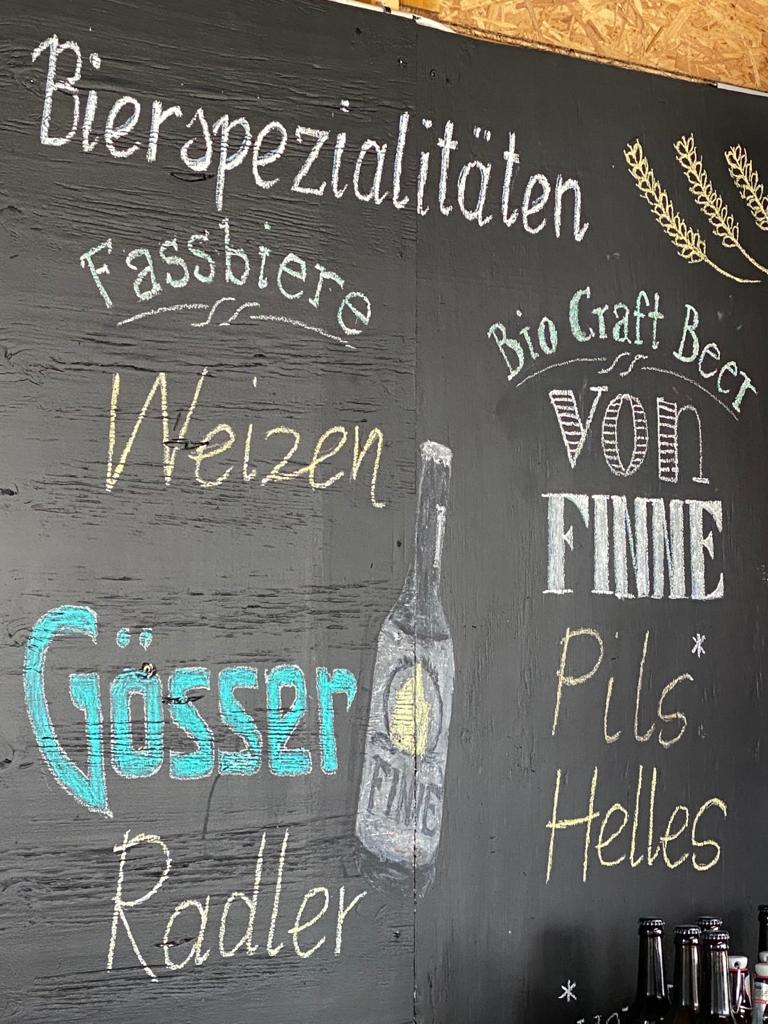 Bierspezialitäten
Fassbiere
Weizen
Gösser
Radler
Bio Craft Beer
von
FINNE
Pils*
Helles
FINNE
*